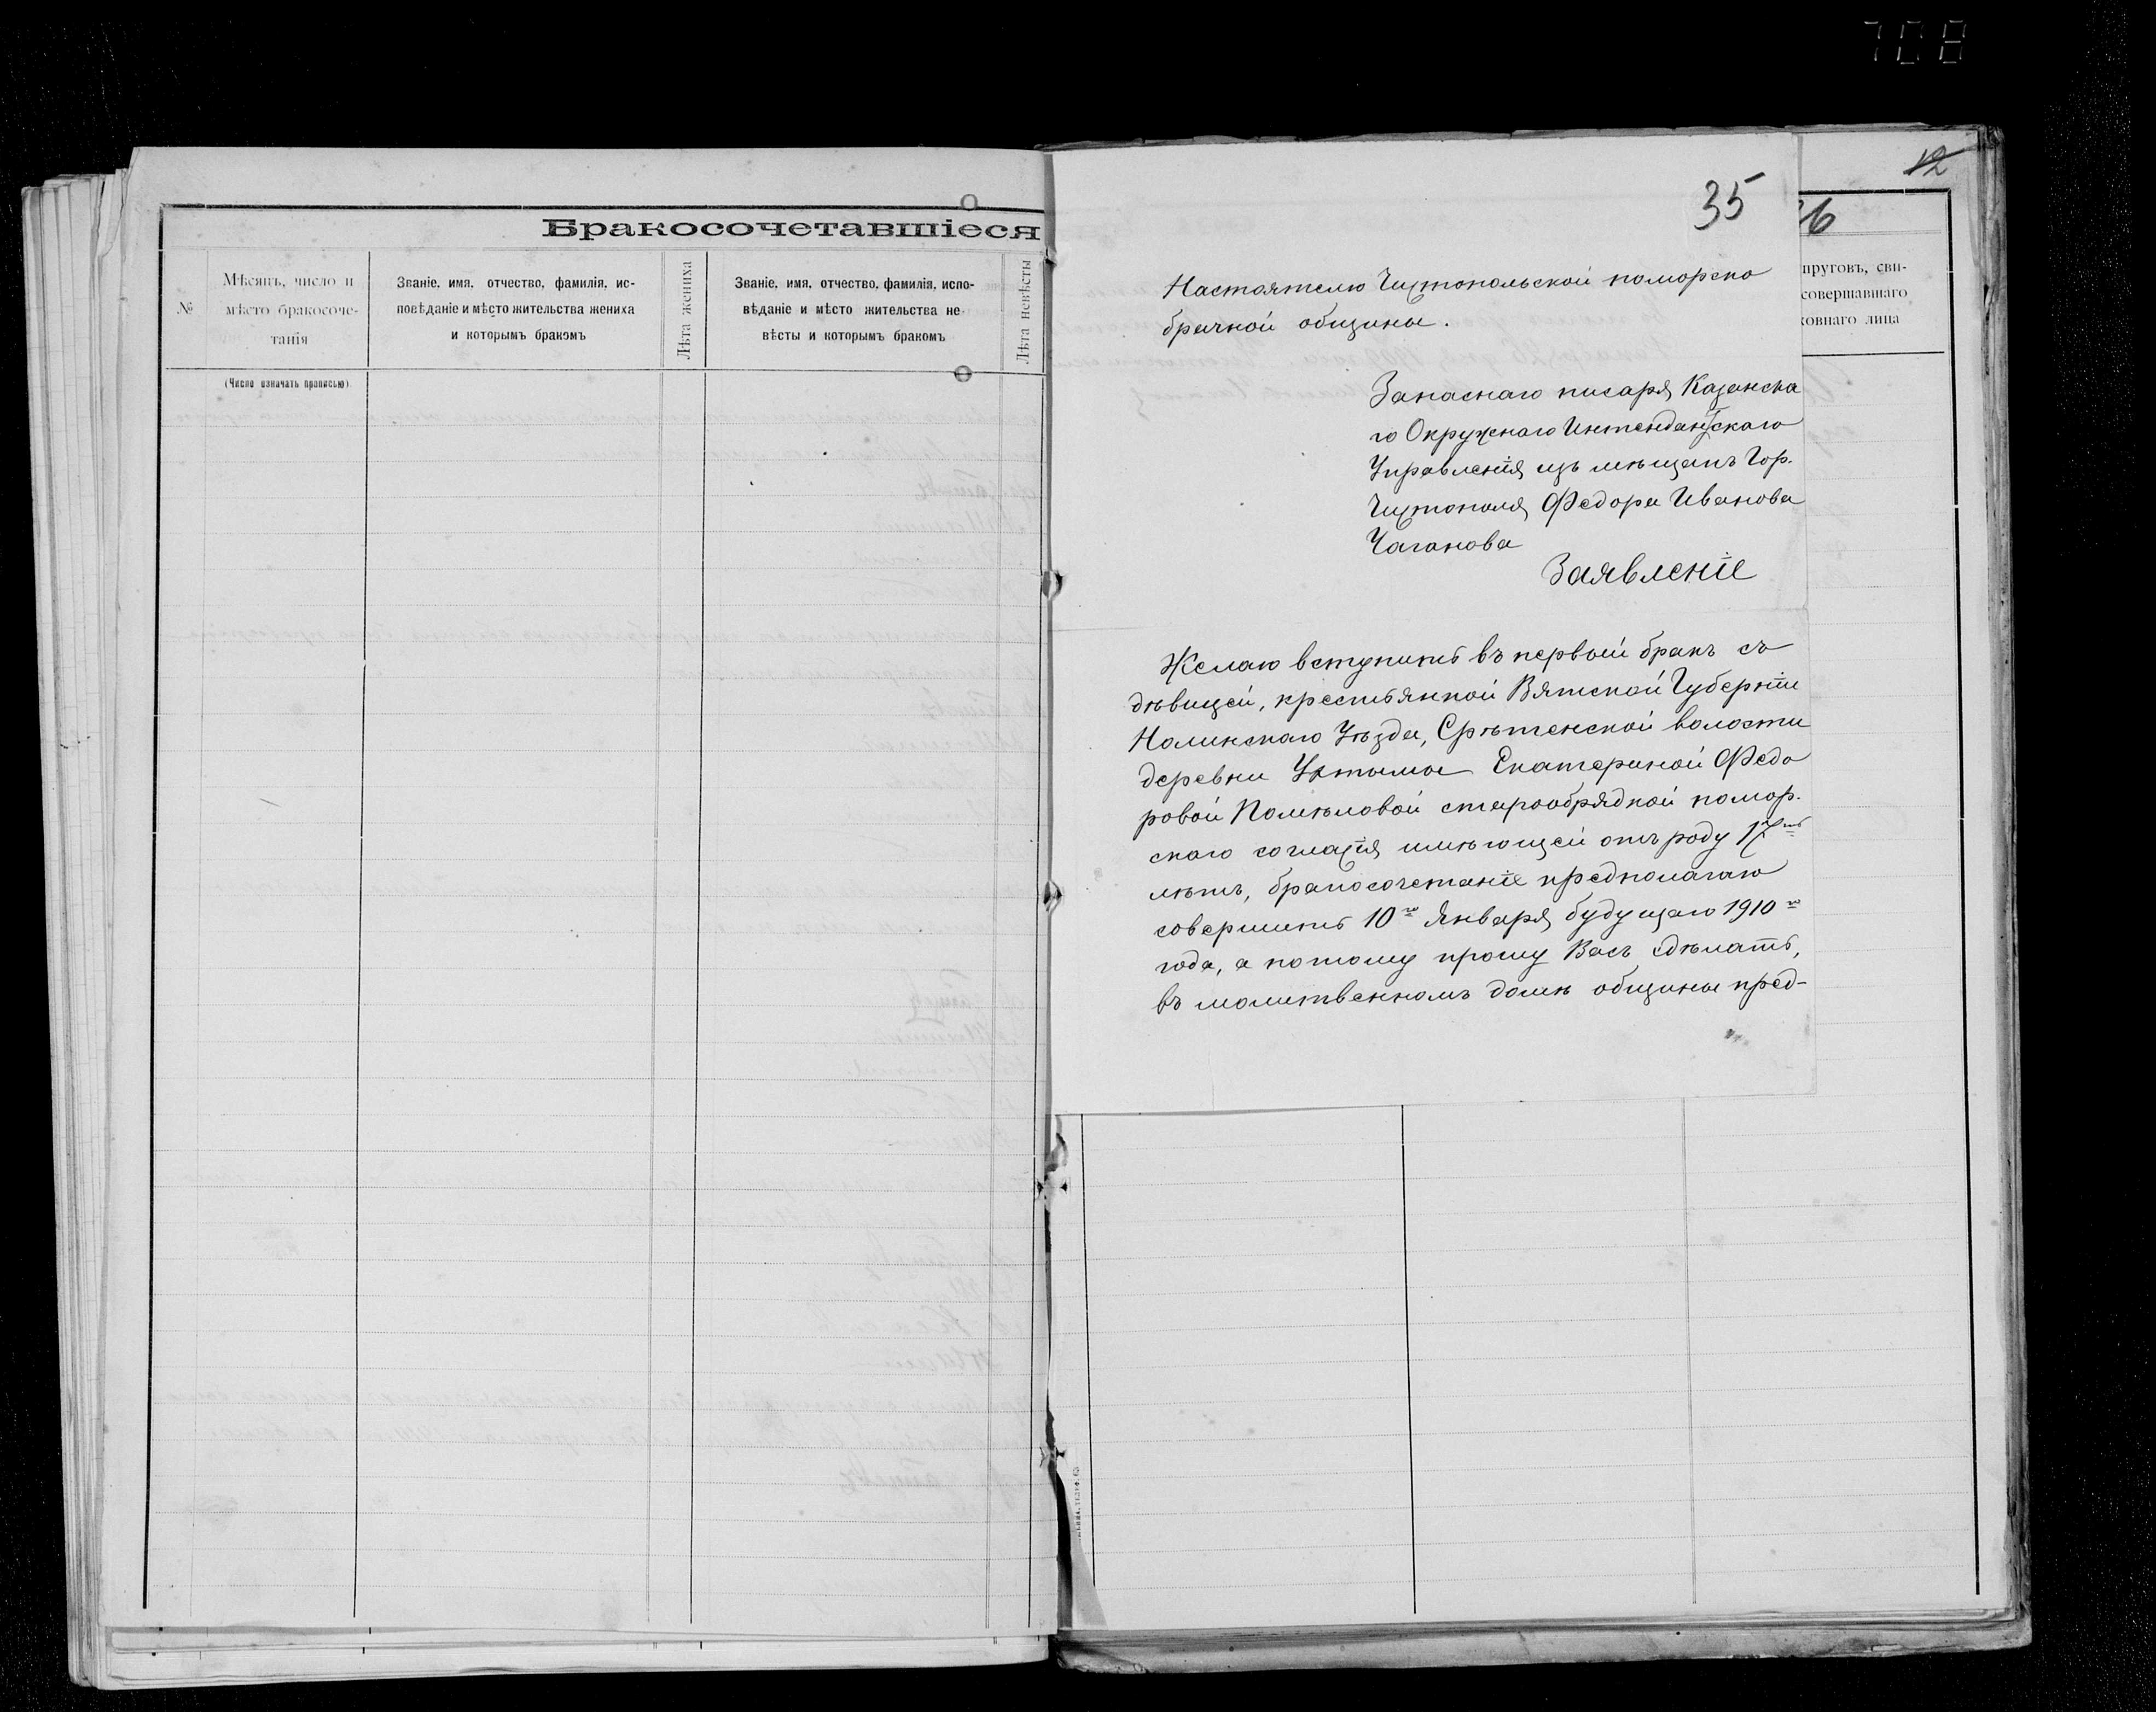 708
Бракосочетавшіеся
№
Мѣсяцъ, число и
мѣсто бракосоче-
танія
(Число означать прописью)
Званіе, имя, отчество, фамилія, ис-
повѣданіе и мѣсто жительства жениха
и которымъ бракомъ
Лѣта жениха
Званіе, имя, отчество, фамилія, испо-
вѣданіе и мѣсто жительства не-
вѣсты и которымъ бракомъ
Лѣта невѣсты
12
35
пруговъ, сви-
совершавшаго
ховнаго лица
Настоятелю Чистопольской поморско
брачной общины.
Запаснаго писаря Казанска
го Окружнаго Интендантскаго
Управленія изъ мѣщанъ Гор.
Чистополя Федора Иванова
Чаганова
Заявленіе
Желаю вступить въ первый бракъ съ
дѣвицей, крестьянкой Вятской Губерніи
Нолинскаго Уѣзда, Срѣтенской волости
деревни Уртымы Екатериной Федо
ровой Помѣловой старообрядкой помор.
скаго согласія имѣющей отъ роду 17ть
лѣтъ, бракосочетаніе предполагаю
совершить 10го Января будущаго 1910го
года, а потому прошу Васъ сдѣлать,
въ молитвенномъ домѣ общины пред-